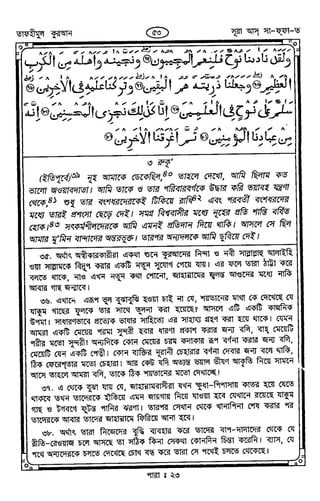 তাফহীমুল কুরআন
৫৩
সূরা আস্ সা-ফ্‌ফা-ত
وَلَقَدْ نَادٰىنَا نُوْحٌ فَلَنِعْمَ الْمُجِيْبُوْنَ ۝ وَنَجَّيْنٰهُ وَاَهْلَهٗ مِنَ الْكَرْبِ
الْعَظِيْمِ ۝ وَجَعَلْنَا ذُرِّيَّتَهٗ هُمُ الْبٰقِيْنَ ۝ وَتَرَكْنَا عَلَيْهِ فِى الْاٰخِرِيْنَ ۝
سَلٰمٌ عَلٰى نُوْحٍ فِى الْعٰلَمِيْنَ ۝ اِنَّا كَذٰلِكَ نَجْزِى الْمُحْسِنِيْنَ ۝ اِنَّهٗ
مِنْ عِبَادِنَا الْمُؤْمِنِيْنَ ۝ ثُمَّ اَغْرَقْنَا الْاٰخَرِيْنَ ۝
৩ রুকূ'
(ইতিপূর্বে)৩৯ নূহ আমাকে ডেকেছিল,৪০ তাহলে দেখো, আমি ছিলাম কত
ভালো জওয়াবদাতা। আমি তাকে ও তার পরিবারবর্গকে উদ্ধার করি ভয়াবহ যন্ত্রণা
থেকে,৪১ শুধু তার বংশধরদেরকেই টিকিয়ে রাখি৪২ এবং পরবর্তী বংশধরদের
মধ্যে তারই প্রশংসা ছেড়ে দেই। সমগ্র বিশ্ববাসীর মধ্যে নূহের প্রতি শান্তি বর্ষিত
হোক।৪৩ সৎকর্মশীলদেরকে আমি এমনই প্রতিদান দিয়ে থাকি। আসলে সে ছিল
আমার মু'মিন বান্দাদের অন্তরভুক্ত। তারপর অন্যদলকে আমি ডুবিয়ে দেই।
৩৫. অর্থাৎ অস্বীকারকারীরা একথা শুনে কুরআনের নিন্দা ও নবী সাল্লাল্লাহু আলাইহি
ওয়া সাল্লামকে বিদ্রূপ করার একটি নতুন সুযোগ পেয়ে যায়। এর ফলে তারা ঠাট্টা করে
বলতে থাকে, নাও এখন নতুন কথা শোনো, জাহান্নামের জ্বলন্ত আগুনের মধ্যে নাকি
আবার গাছ জন্মাবে।
৩৬. এখানে এরূপ ভুল বুঝাবুঝি হওয়া চাই না যে, শয়তানের মাথা কে দেখেছে যে
যাক্কূম গাছের ফুলকে তার সাথে তুলনা করা হয়েছে? আসলে এটি একটি কাল্পনিক
উপমা। সাধারণভাবে প্রত্যেক ভাষার সাহিত্যে এর সাহায্য গ্রহণ করা হয়ে থাকে। যেমন
আমরা একটি মেয়ের পরমা সুন্দরী হবার ধারণা প্রকাশ করার জন্য বলি, বাহ্ মেয়েটি
পরীর মতো সুন্দরী। অন্যদিকে কোন মেয়ের চরম কদাকার রূপ বর্ণনা করার জন্য বলি,
মেয়েটি যেন একটি পেত্নী। কোন ব্যক্তির নূরানী চেহারার বর্ণনা দেবার জন্য বলে থাকি,
ঠিক ফেরেশতার মতো চেহারা। আর কেউ যদি অত্যন্ত ভয়াল ভীষণ আকৃতি নিয়ে সামনে
আসে তাহলে আমরা বলি, তাকে ঠিক শয়তানের মতো দেখাচ্ছে।
৩৭. এ থেকে বুঝা যায় যে, জাহান্নামবাসীরা যখন ক্ষুধা-পিপাসায় কাতর হয়ে যেতে
থাকবে তখন তাদেরকে হাঁকিয়ে এমন জায়গায় নিয়ে যাওয়া হবে যেখানে রয়েছে যাক্কূম
গাছ ও টগবগে ফুটন্ত পানির ঝরণা। তারপর সেখান থেকে খানাপিনা শেষ করার পর
তাদেরকে আবার তাদের জাহান্নামে ফিরিয়ে আনা হবে।
৩৮. অর্থাৎ তারা নিজেদের বুদ্ধি ব্যবহার করে তাদের বাপ-দাদাদের থেকে যে
রীতি-রেওয়াজ চলে আসছে তা সঠিক কিনা সেকথা কোনদিন চিন্তা করেনি। ব্যস, যে
পথে অন্যদেরকে চলতে দেখেছে চোখ বন্ধ করে তারা সে পথেই চলতে থেকেছে।
পারা : ২৩